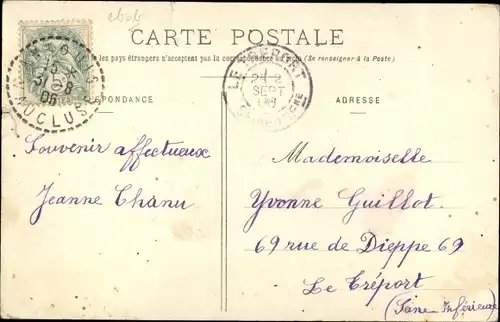 ebab
CARTE POSTALE
les pays étrangers n'acceptent pas la correspondance au recto (Se renseigner à la Poste)
LE TRÉPORT
2 SEPT
VAUCLUSE
06
CORRESPONDANCE
ADRESSE
Souvenir affectueux
Jeanne Chanu
Mademoiselle
Yvonne Guillot
69 rue de Dieppe 69
Le Tréport
(Seine Inférieure)